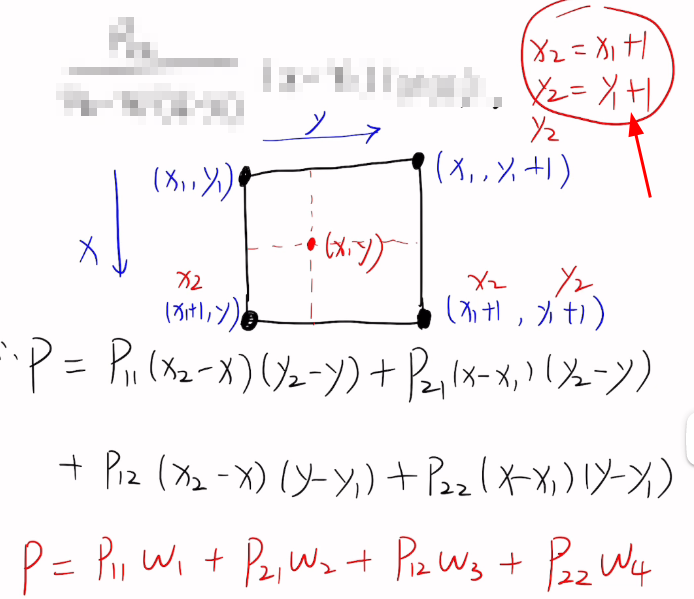 x₂ = x₁+1
y₂ = y₁+1
y
y₂
(x₁, y₁)
(x₁, y₁+1)
x
(x,y)
x₂
x₂ y₂
(x₁+1, y)
(x₁+1, y₁+1)
∴ P = P₁₁(x₂-x)(y₂-y) + P₂₁(x-x₁)(y₂-y)
+ P₁₂(x₂-x)(y-y₁) + P₂₂(x-x₁)(y-y₁)
P = P₁₁ w₁ + P₂₁ w₂ + P₁₂ w₃ + P₂₂ w₄